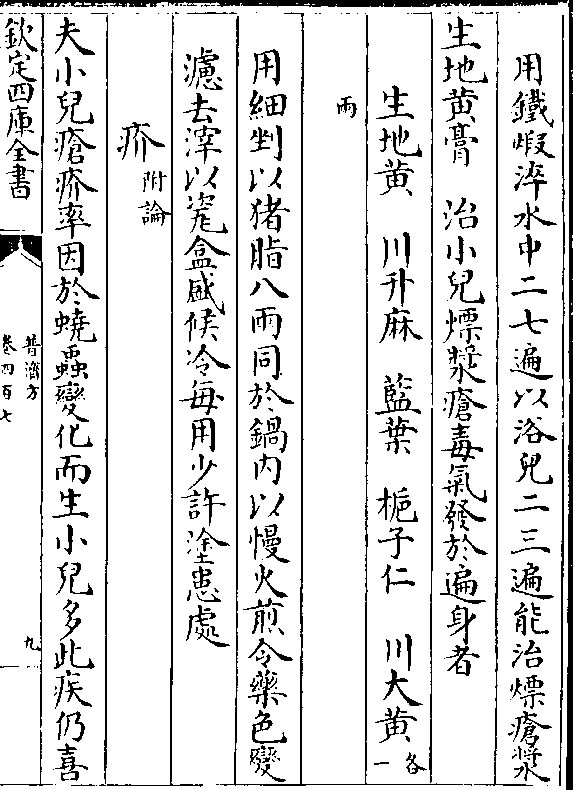 用鐵煆淬水中二七遍以浴兒二三遍能治熛瘡漿
生地黄膏　治小兒熛漿瘡毒氣發於遍身者
生地黄　川升麻　藍葉　梔子仁　川大黄各一
兩
用細剉以猪脂八兩同於鍋内以慢火煎令藥色變
濾去滓以瓷盒盛候冷每用少許塗患處
疥附論
夫小兒瘡疥率因於蟯蟲變化而生小兒多此疾仍喜
欽定四庫全書
普濟方
卷四百七
九